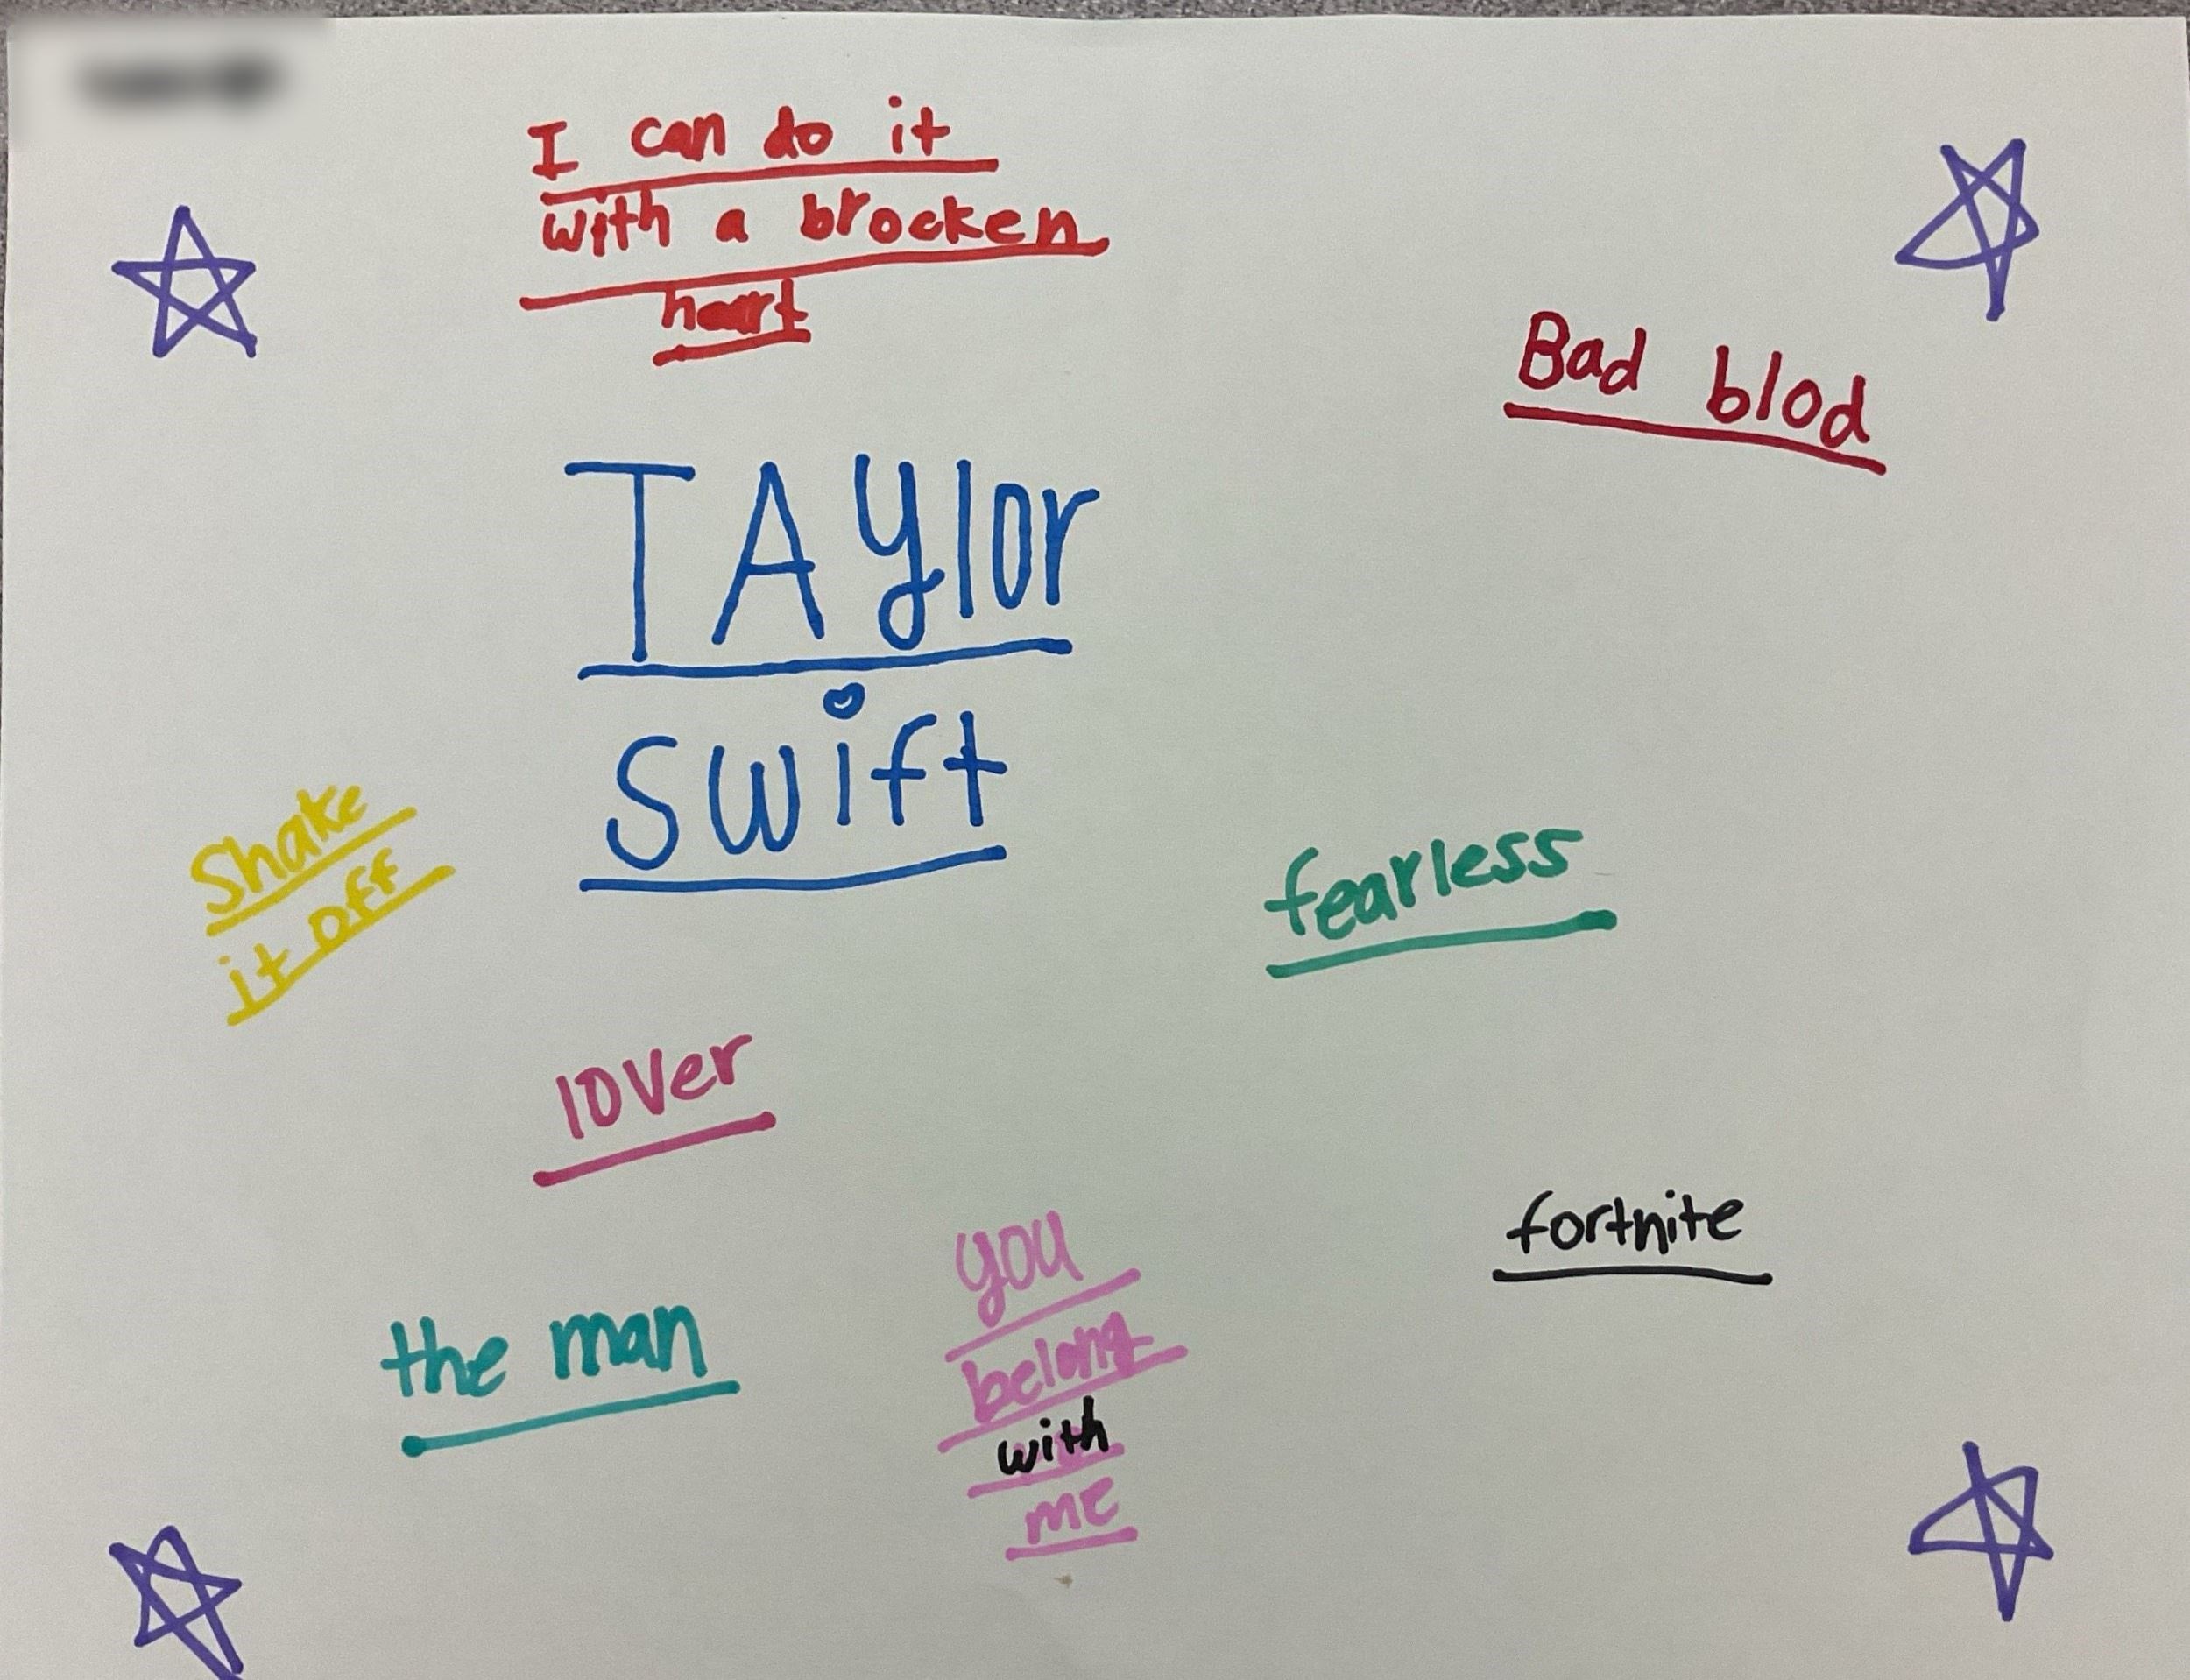 I can do it
with a brocken
heart
Bad blod
TAylor
swift
Shake
it off
fearless
lover
fortnite
the man
you
belong
with
me